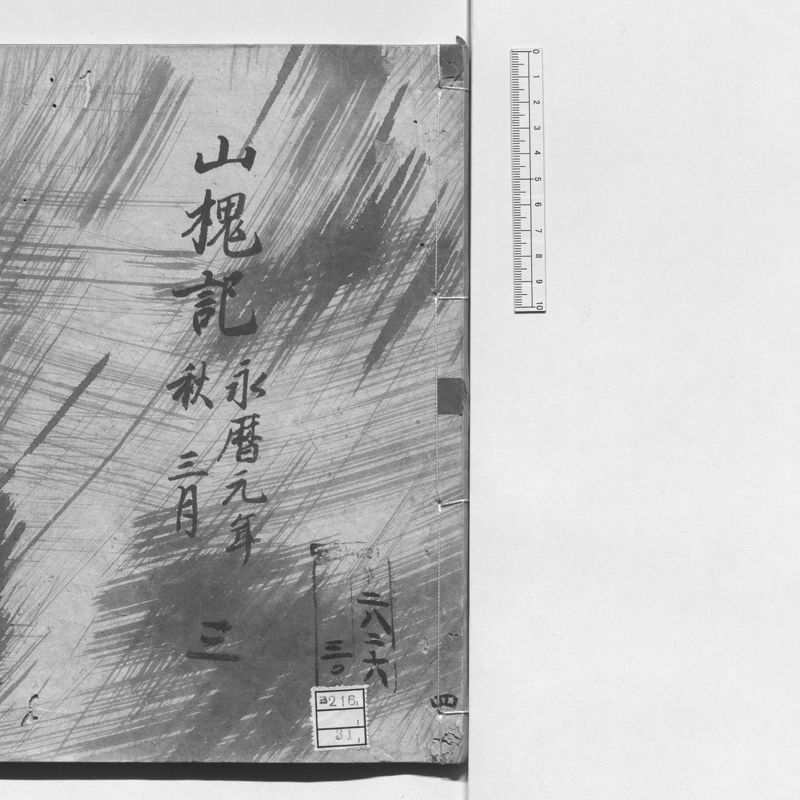 山槐記
永暦元年
秋 三月
三
二八二六
三〇
a216
31
0 1 2 3 4 5 6 7 8 9 10